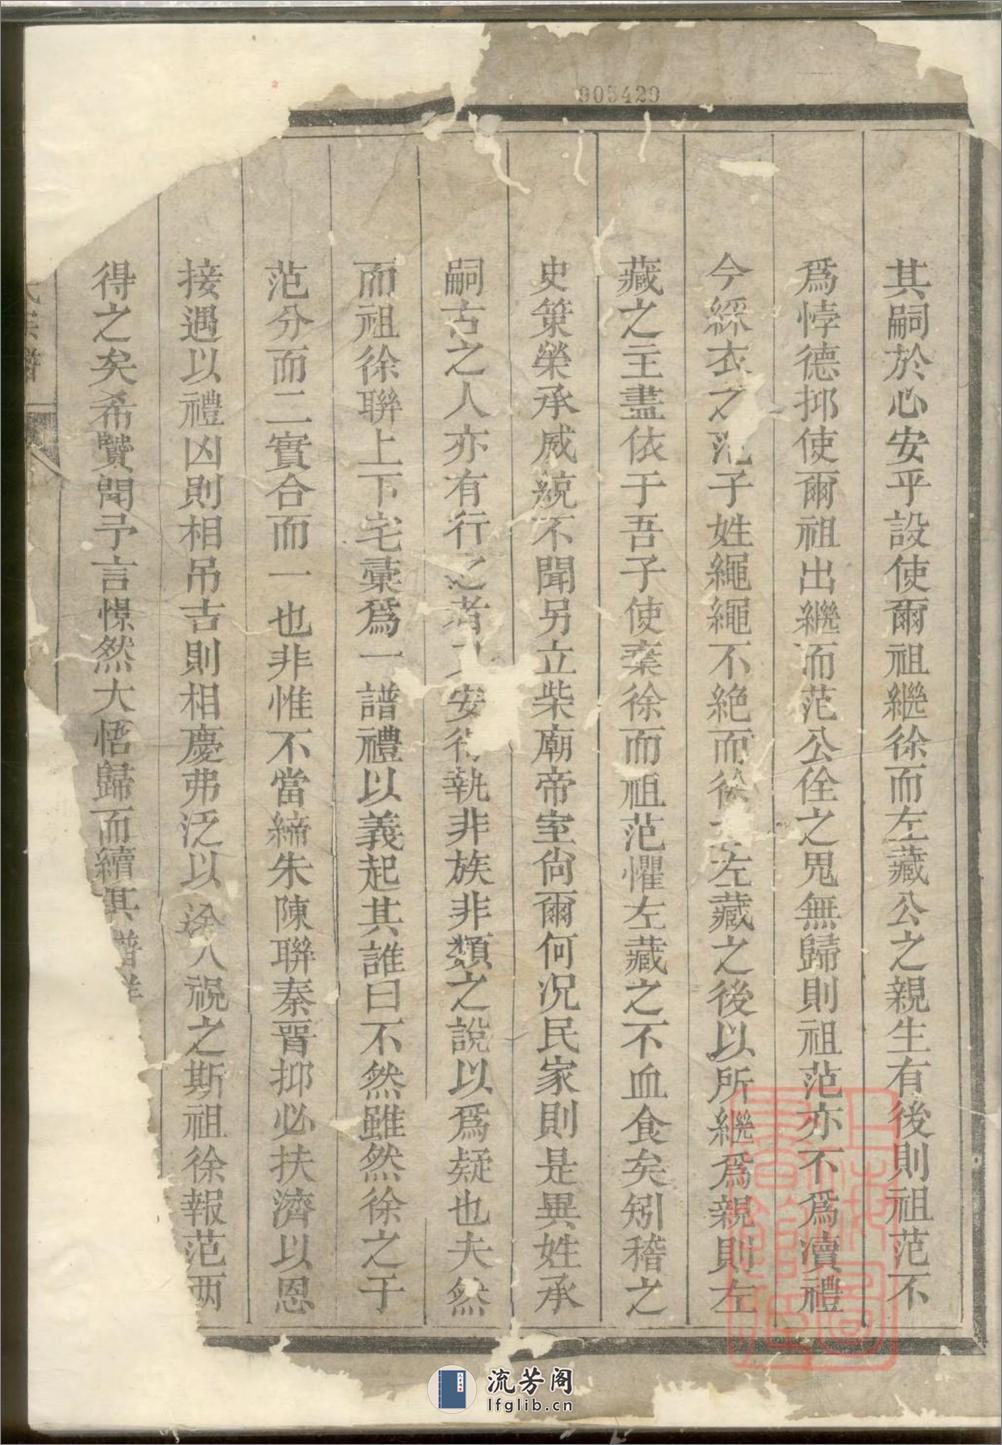 905429
其嗣於心安乎設使爾祖繼徐而左藏公之親生有後則祖范不
爲悖德抑使爾祖出繼而范公佺之鬼無歸則祖范亦不爲瀆禮
今綵衣之范子姓繩繩不絶而後左藏之後以所繼爲親則左
藏之主盡依于吾子使棄徐而祖范懼左藏之不血食矣矧稽之
史策榮承威統不聞另立柴廟帝室尙爾何况民家則是異姓承
嗣古之人亦有行之者安得執非族非類之說以爲疑也夫然
而祖徐聨上下宅彚爲一譜禮以義起其誰曰不然雖然徐之于
范分而二實合而一也非惟不當締朱陳聨秦晋抑必扶濟以恩
接遇以禮凶則相吊吉則相慶弗泛以途人視之斯祖徐報范兩
得之矣希贒聞予言憬然大悟歸而續其譜
氏宗譜
上海圖書館藏
流芳阁
lfglib.cn